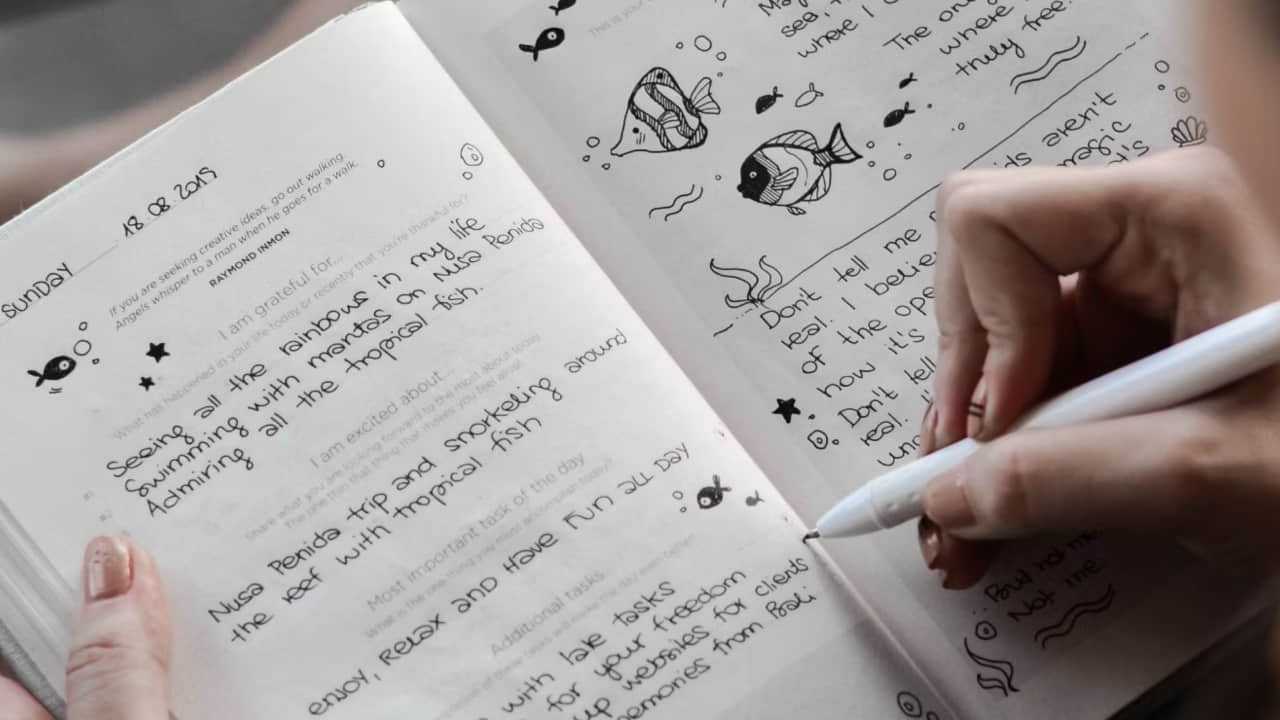 SUNDAY 18.08.2019
If you are seeking creative ideas, go out walking
Angels whisper to a man when he goes for a walk.
RAYMOND INMON
I am grateful for...
What has happened in your life today or recently that you're thankful for?
Seeing all the rainbows in my life
Swimming with mantas on Nusa Penida
Admiring all the tropical fish.
I am excited about...
Share what you are looking forward to the most about today
The one thing that makes you feel great
Nusa Penida trip and snorkeling around
the reef with tropical fish
Most important task of the day
What is the one thing you must accomplish today?
ENJOY, RELAX AND HAVE FUN ALL DAY
Additional tasks
will make this day even better?
with lake tasks
for your freedom
up websites for clients
memories from Bali
This is your
sea,
where I
The on
where
truly free.
aren't
magic
Don't tell me
real. I belie
of the ope
how it's
Don't tell
real.
But not me.
Not me.